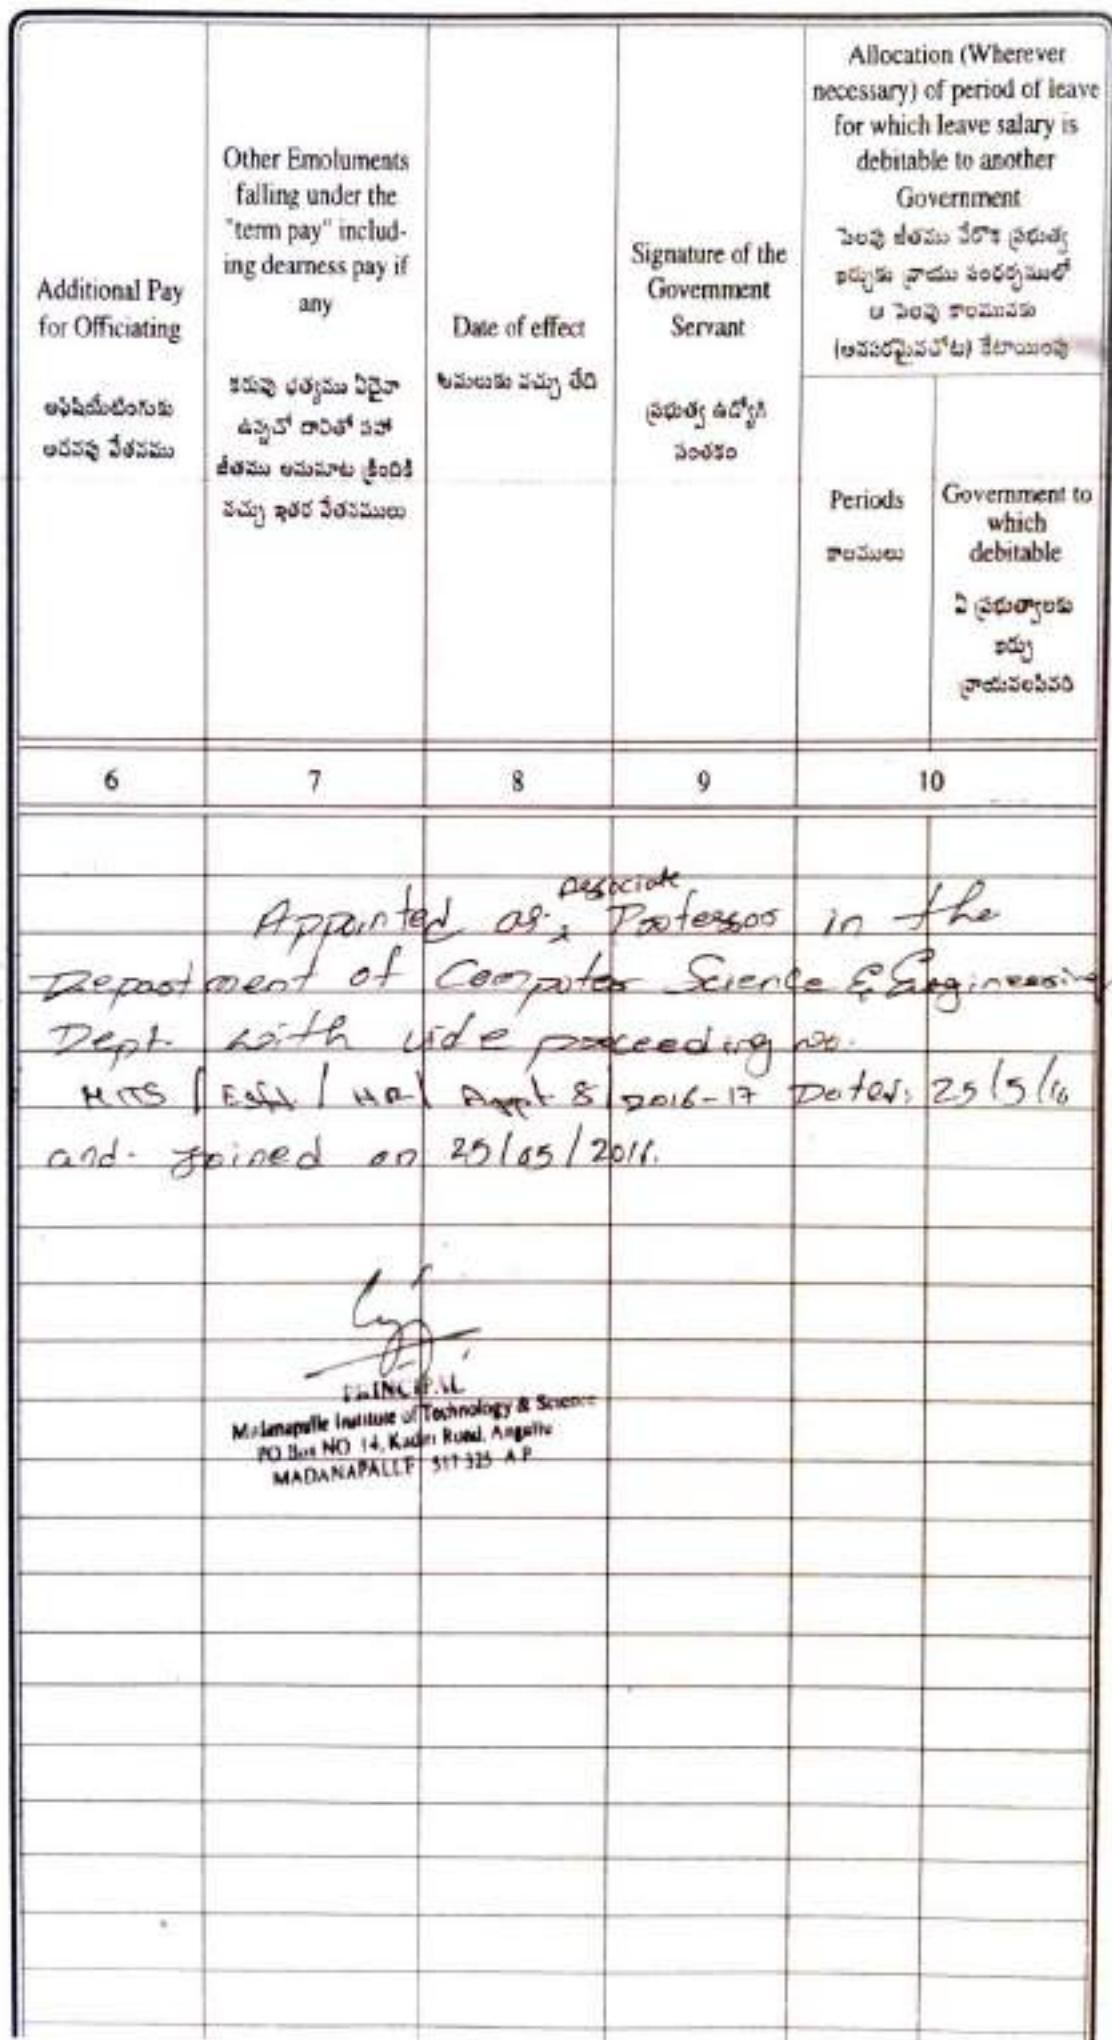 Additional Pay
for Officiating
అఫిషియేటింగుకు
అదనపు వేతనము
Other Emoluments
falling under the
"term pay" includ-
ing dearness pay if
any
కరువు భత్యము ఏదైనా
ఉన్నచో దానితో సహా
జీతము అనుమాట క్రిందికి
వచ్చు ఇతర వేతనములు
Date of effect
అమలుకు వచ్చు తేది
Signature of the
Government
Servant
ప్రభుత్వ ఉద్యోగి
సంతకం
Allocation (Wherever
necessary) of period of leave
for which leave salary is
debitable to another
Government
సెలవు జీతము వేరొక ప్రభుత్వ
ఖర్చుకు వ్రాయు సందర్భములో
ఆ సెలవు కాలమునకు
(అవసరమైనచోట) కేటాయింపు
Periods
కాలములు
Government to
which
debitable
ఏ ప్రభుత్వాలకు
ఖర్చు
వ్రాయవలసినది
6 7 8 9 10
Associate
Appointed as Professor in the
Department of Computer Science & Engineering
Dept. with vide proceeding no.
MITS / Estt / HR / Appt 8 / 2016-17 Dated: 25/5/16
and joined on 25/05/2016.
PRINCIPAL
Madanapalle Institute of Technology & Science
PO Box NO 14, Kadiri Road, Angallu
MADANAPALLE 517 325 A P